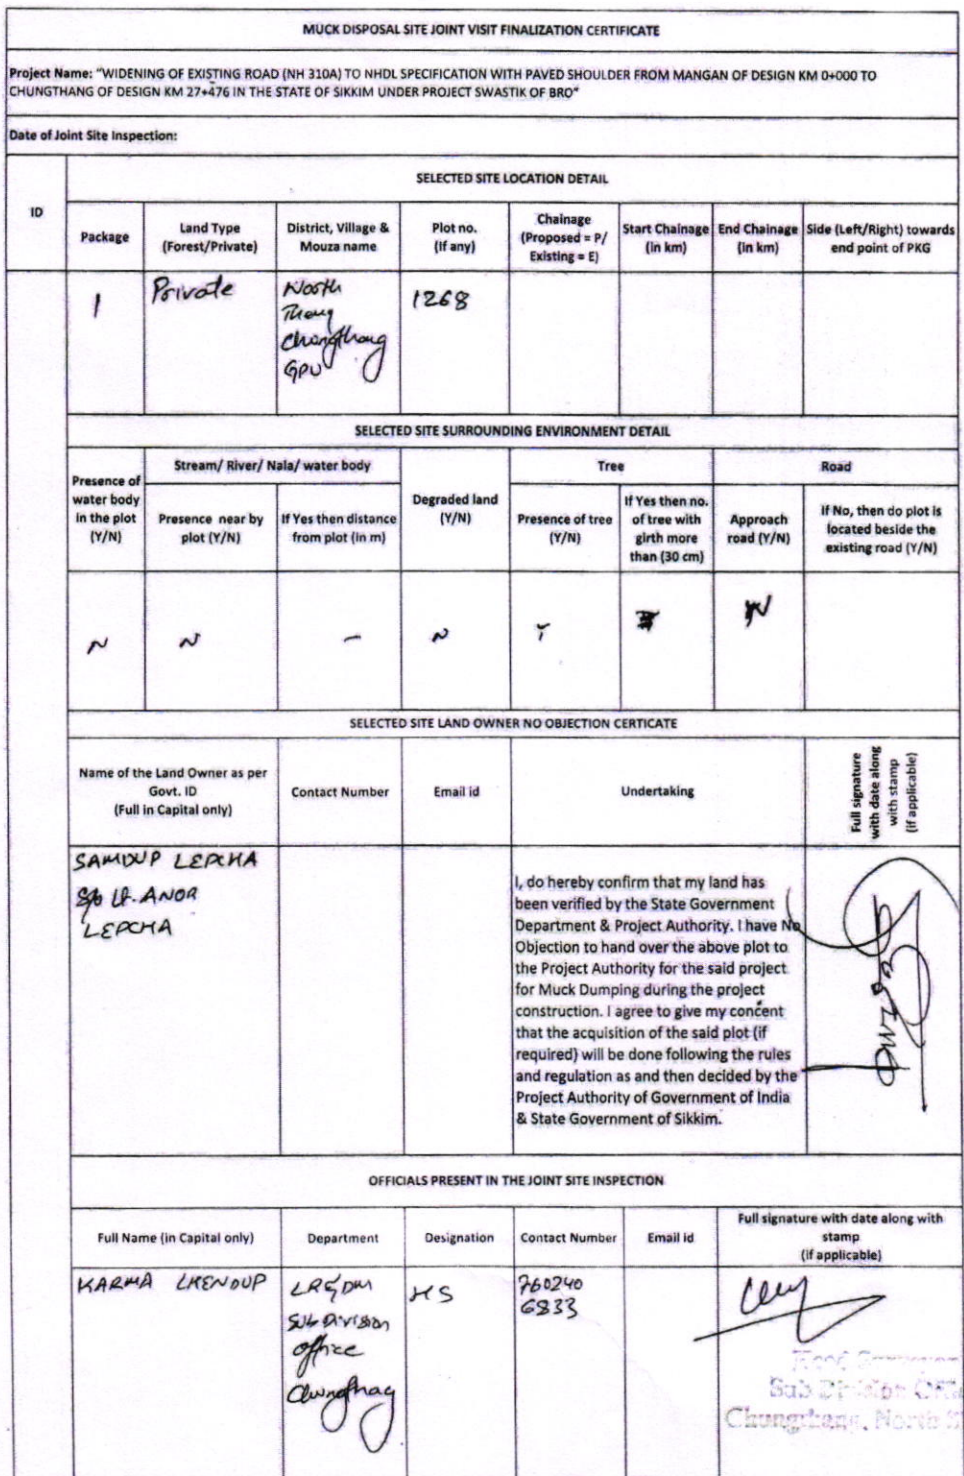 MUCK DISPOSAL SITE JOINT VISIT FINALIZATION CERTIFICATE
Project Name: "WIDENING OF EXISTING ROAD (NH 310A) TO NHDL SPECIFICATION WITH PAVED SHOULDER FROM MANGAN OF DESIGN KM 0+000 TO
CHUNGTHANG OF DESIGN KM 27+476 IN THE STATE OF SIKKIM UNDER PROJECT SWASTIK OF BRO"
Date of Joint Site Inspection:
ID
SELECTED SITE LOCATION DETAIL
Package
Land Type
(Forest/Private)
District, Village &
Mouza name
Plot no.
(if any)
Chainage
(Proposed = P/
Existing = E)
Start Chainage
(in km)
End Chainage
(in km)
Side (Left/Right) towards
end point of PKG
1
Private
North
Theng
Chungthang
GPU
1268
SELECTED SITE SURROUNDING ENVIRONMENT DETAIL
Presence of
water body
in the plot
(Y/N)
Stream/ River/ Nala/ water body
Presence near by
plot (Y/N)
If Yes then distance
from plot (in m)
Degraded land
(Y/N)
Tree
Presence of tree
(Y/N)
If Yes then no.
of tree with
girth more
than (30 cm)
Road
Approach
road (Y/N)
If No, then do plot is
located beside the
existing road (Y/N)
N
N
–
N
Y
N
SELECTED SITE LAND OWNER NO OBJECTION CERTICATE
Name of the Land Owner as per
Govt. ID
(Full in Capital only)
Contact Number
Email id
Undertaking
Full signature
with date along
with stamp
(if applicable)
SAMDUP LEPCHA
S/o Lt. ANOR
LEPCHA
I, do hereby confirm that my land has
been verified by the State Government
Department & Project Authority. I have No
Objection to hand over the above plot to
the Project Authority for the said project
for Muck Dumping during the project
construction. I agree to give my concent
that the acquisition of the said plot (if
required) will be done following the rules
and regulation as and then decided by the
Project Authority of Government of India
& State Government of Sikkim.
OFFICIALS PRESENT IN THE JOINT SITE INSPECTION
Full Name (in Capital only)
Department
Designation
Contact Number
Email id
Full signature with date along with
stamp
(if applicable)
KARMA LHENDUP
LR&DM
Sub Division
office
Chungthang
HS
760240
6833
Head Surveyor
Sub Division Offic
Chungthang, North Si